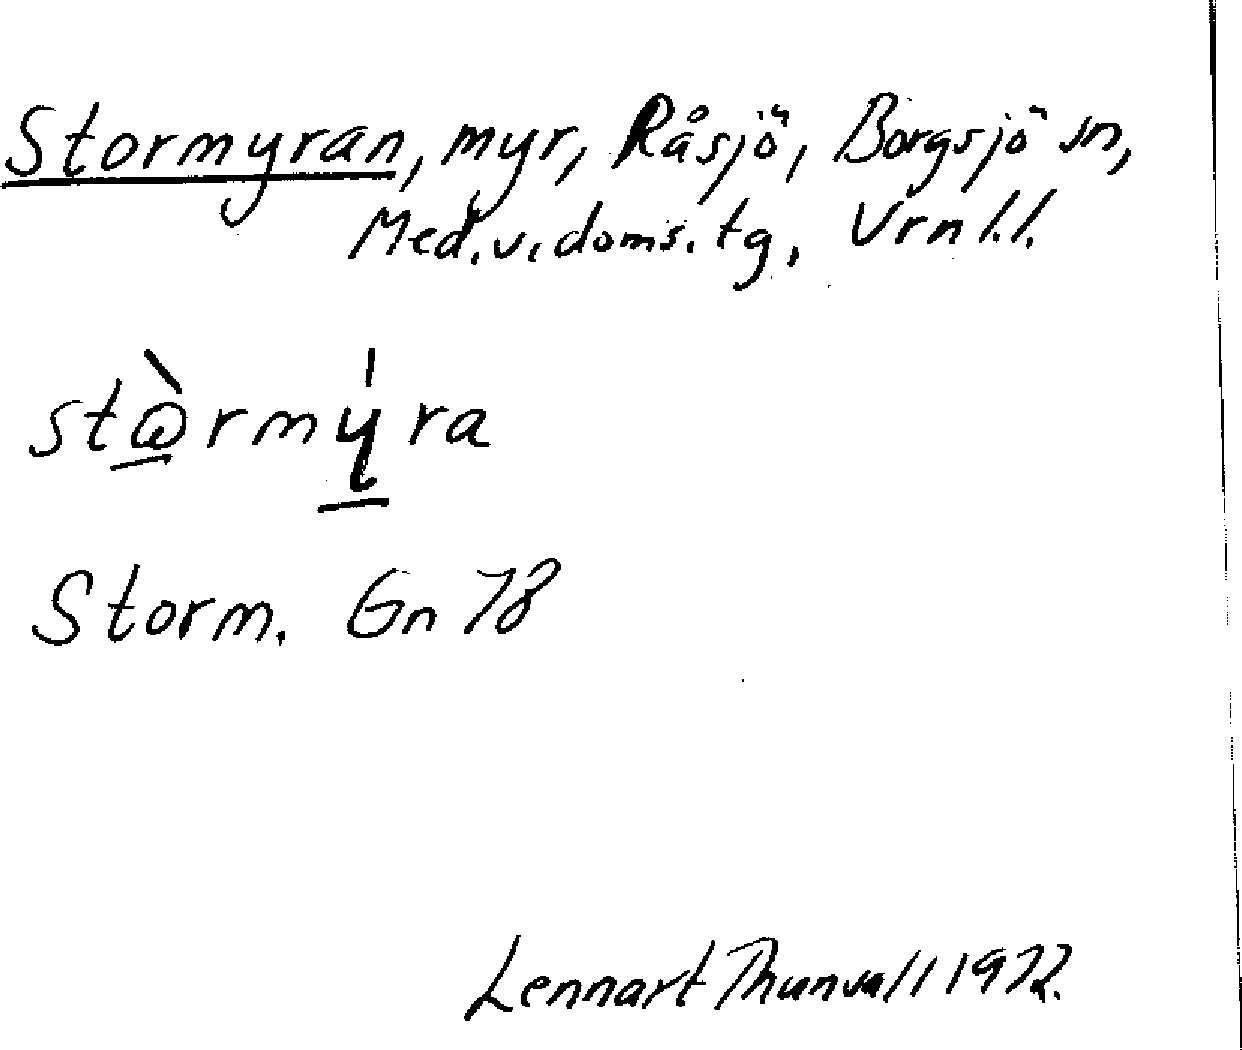 Stormyran, myr, Råsjö, Borgsjö sn,
Med. v. doms. tg, Vrnl.l.
stòrmýra
Storm. Gn 78
Lennart Thunvall 1972.